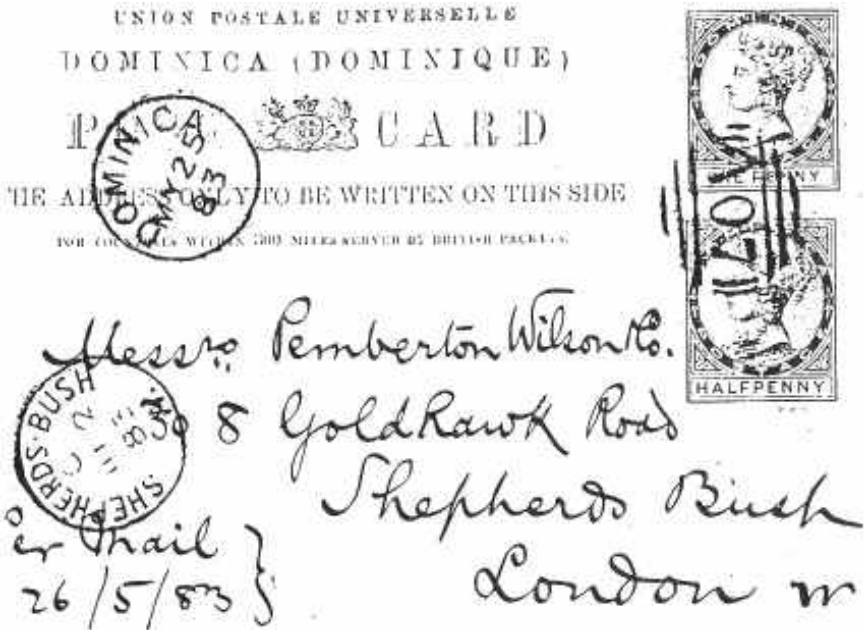 UNION POSTALE UNIVERSELLE
DOMINICA (DOMINIQUE)
CARD
THE ADDRESS ONLY TO BE WRITTEN ON THIS SIDE
FOR COUNTRIES WITHIN 300 MILES SERVED BY BRITISH PACKETS.
DOMINICA
MY 25
83
ONE PENNY
HALFPENNY
Messrs Pemberton Wilson & Co.
No 8 Goldhawk Road
Shepherds Bush
London W
SHEPHERDS·BUSH
per Mail
26/5/83